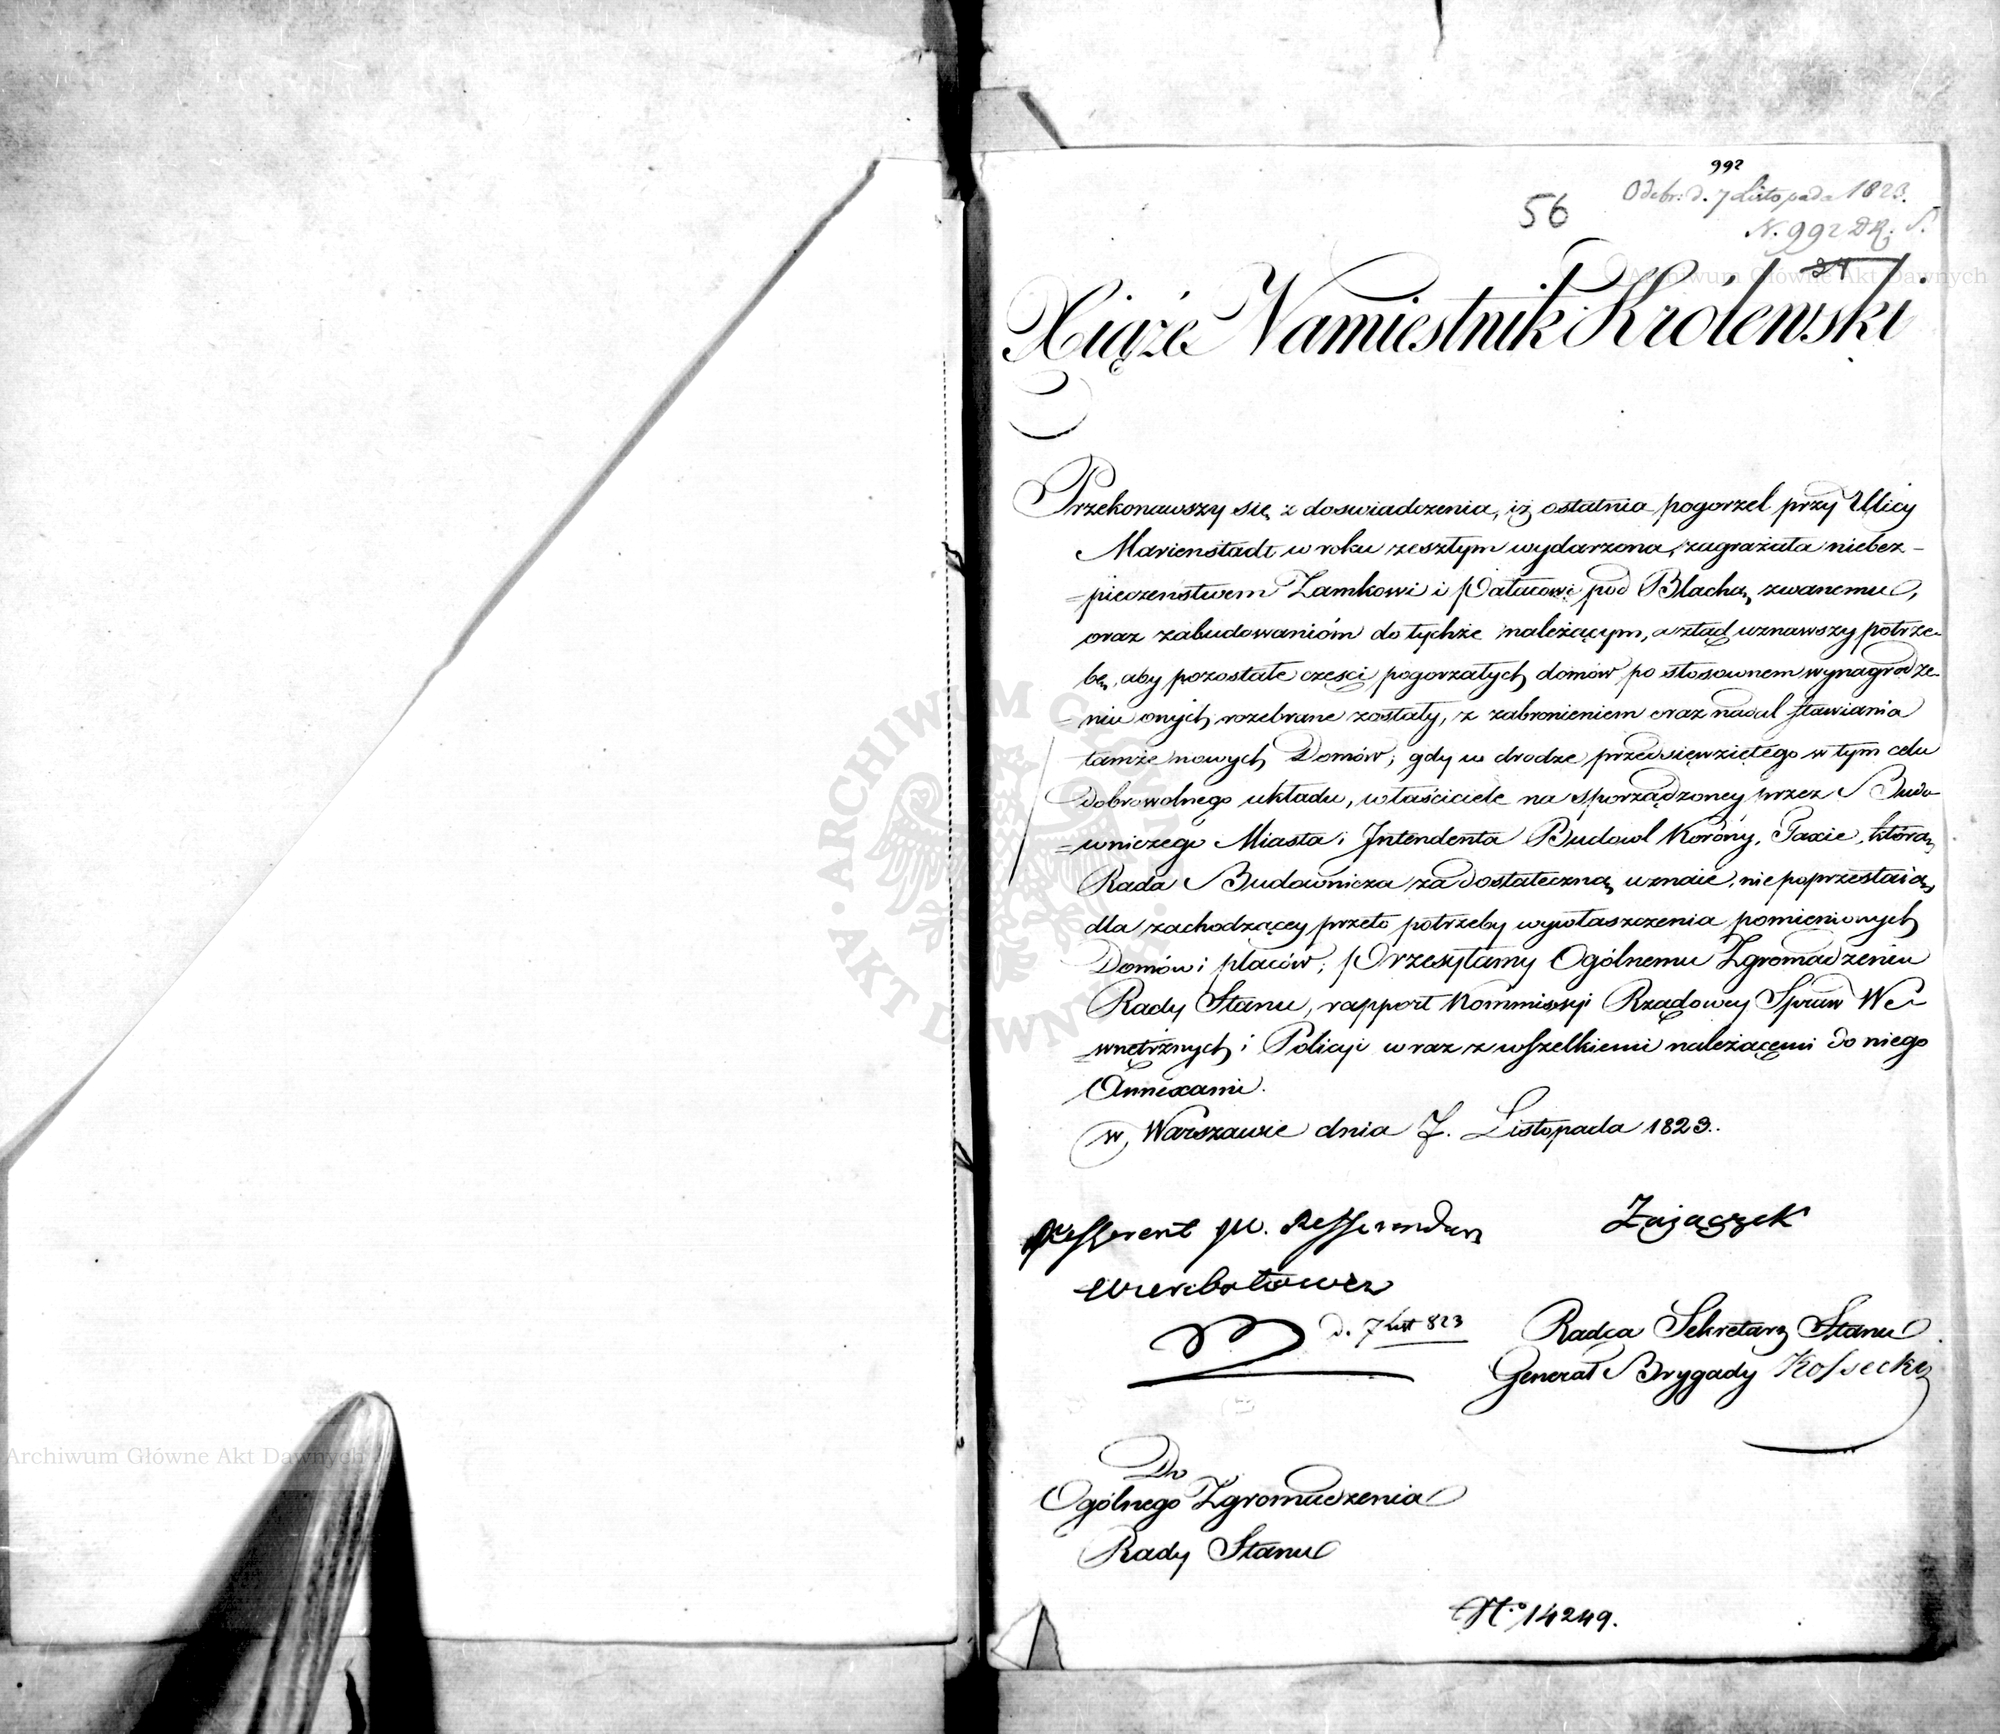 992
56
Odebr: d. 7 Listopada 1823.
N. 992 D.R. S.
24
Xiąże Namiestnik Królewski
Przekonawszy się z doswiadczenia, iż ostatnia pogorzel przy Ulicy
Marienstadt w roku zeszłym wydarzona, zagrażała niebez-
=pieczeństwem Zamkowi i Pałacowi pod Blachą zwanemu,
oraz zabudowaniom do tychże należącym, a ztąd uznawszy potrze-
bę, aby pozostałe części pogorzałych domów po stosownem wynagrodze-
=niu onych rozebrane zostały, z zabronieniem oraz nadal stawiania
tamże nowych Domów; gdy w drodze przedsięwziętego w tym celu
dobrowolnego układu, właściciele na sporządzoney przez Budo-
=wniczego Miasta i Intendenta Budowl Korony, Taxie, którą
Rada Budownicza za dostateczną uznaie, nie poprzestaią,
dla zachodzącey przeto potrzeby wywłaszczenia pomienionych
Domów i placów; Przesyłamy Ogólnemu Zgromadzeniu
Rady Stanu, rapport Kommissyi Rządowey Spraw We-
=wnętrznych i Policyi wraz z wszelkiemi należącemi do niego
Annexami.
w Warszawie dnia 7. Listopada 1823.
Zajączek
Refferent pu. Refferendarz
d. 7 List 823
Radca Sekretarz Stanu
Generał Brygady Kossecki
Do
Ogólnego Zgromadzenia
Rady Stanu
No. 14249.
Archiwum Główne Akt Dawnych
Archiwum Główne Akt Dawnych
ARCHIWUM GŁÓWNE · AKT DAWNYCH ·